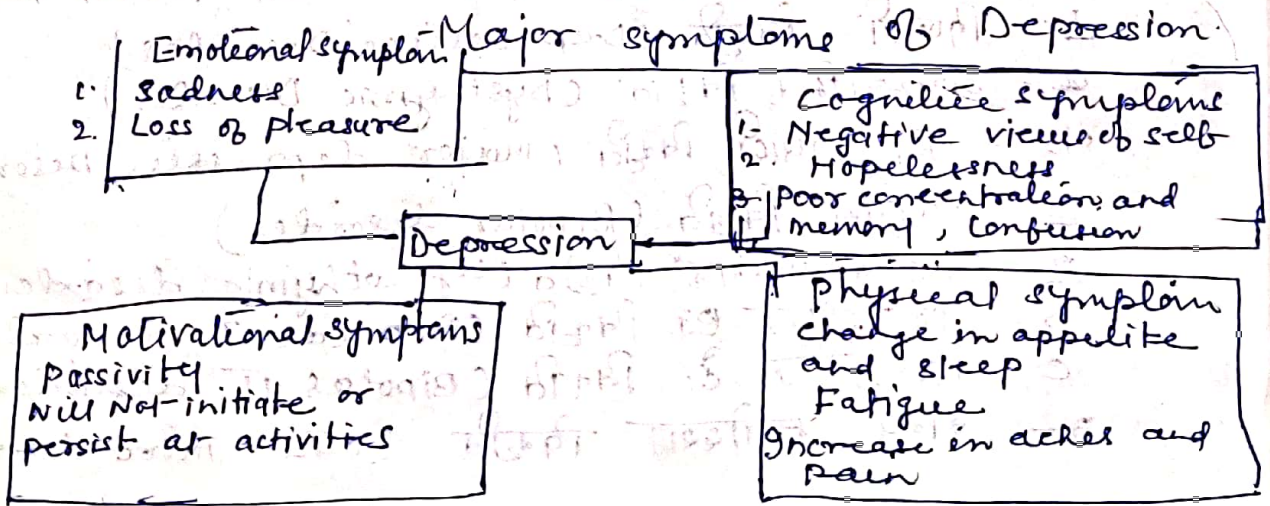 Major symptoms of Depression.
Emotional symptom
1. Sadness
2. Loss of pleasure
Cognitive symptoms
1- Negative views of self
2. Hopelessness
3- Poor concentration and
memory, Confusion
Depression
Motivational symptoms
Passivity
Will Not-initiate or
persist at activities
Physical symptom
change in appetite
and sleep
Fatigue
Increase in aches and
pain